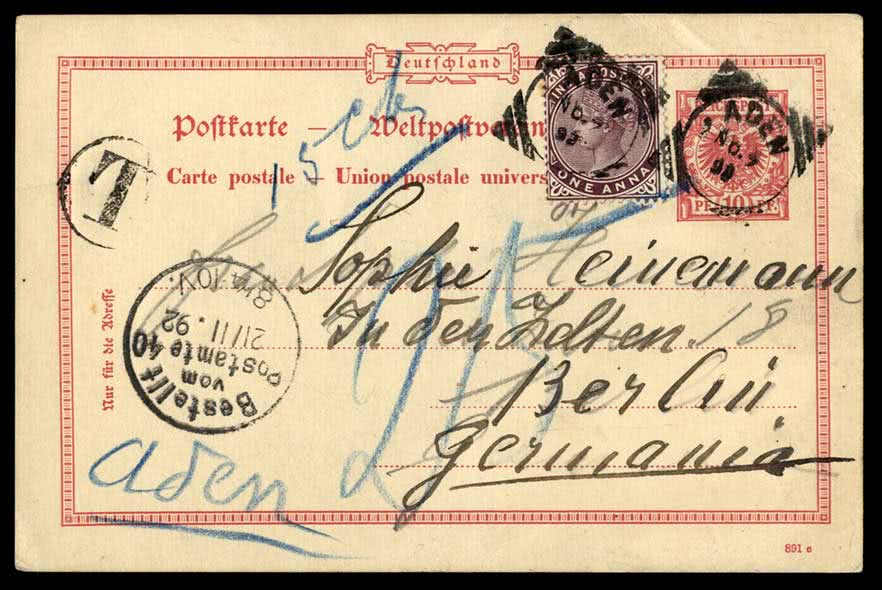 Deutschland
Postkarte — Weltpostverein
Carte postale — Union postale univers
15 cts
T
INDIA POSTAGE
ONE ANNA
ADEN
NO.
92
REICHSPOST
10 PF
ADEN
NO.
92
Sophie Heinemann
In den Zelten 18
Berlin
Germania
25
Aden
Nur für die Adresse
Bestellt
vom
Postamte 40
21/11.92
8¼-10V.
891 e